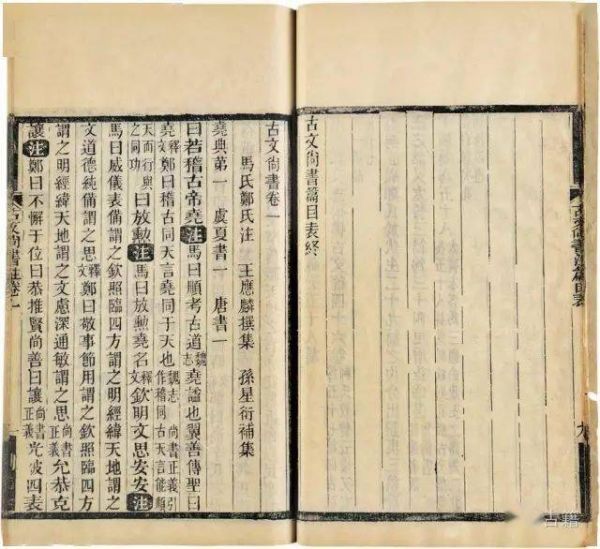 古文尚書篇目表
九
古文尚書篇目表終
古文尚書卷一
馬氏鄭氏注 王應麟撰集 孫星衍補集
堯典第一 虞夏書一 唐書一
曰若稽古帝堯注馬曰順考古道魏志堯諡也翼善傳聖曰
堯釋文鄭曰稽古同天言堯同于天也魏志 尚書正義引作稽同古天言能順
天而行與之同功曰放勳注馬曰放勳堯名釋文欽明文思安安注
馬曰威儀表備謂之欽照臨四方謂之明經緯天地謂之
文道德純備謂之思釋文鄭曰敬事節用謂之欽照臨四方
謂之明經緯天地謂之文慮深通敏謂之思尚書正義允恭克
讓注鄭曰不懈于位曰恭推賢尚善曰讓尚書正義光被四表
古文尚書注卷一
一
古籍